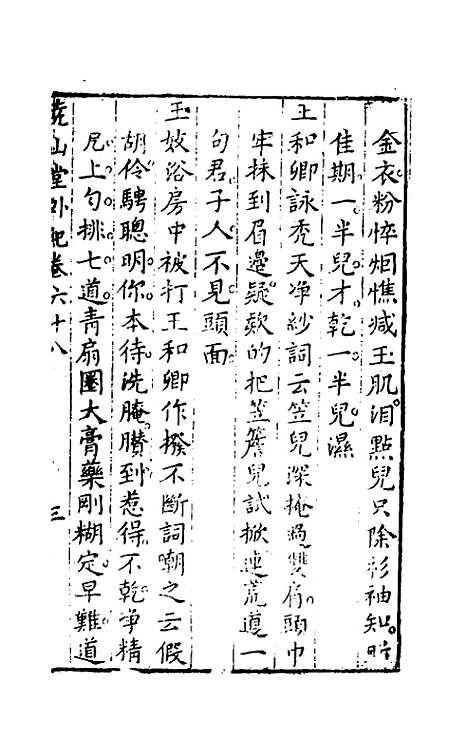 金衣粉悴烟憔减玉肌淚點兒只除衫袖知盼
佳期一半兒才乾一半兒濕
王和卿詠禿天净紗詞云笠兒深掩過雙肩頭巾
牢抹到眉邊疑欵的把笠簷兒試掀連荒道一
句君子人不見頭面
玉妓浴房中被打王和卿作撥不斷詞嘲之云假
胡伶騁聰明你本待洗腌臢到惹得不乾净精
尻上勻排七道青扇圈大膏藥剛糊定早難道
堯山堂外紀卷六十八 三